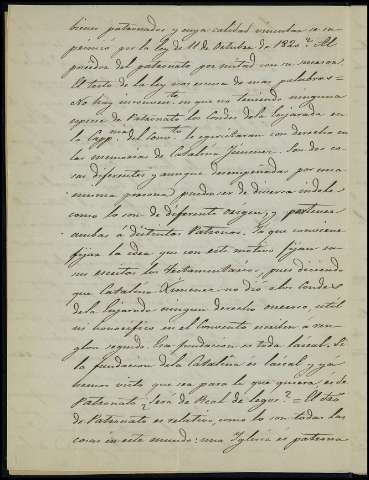 bienes patronados y cuya calidad vincular se su-
primió por la ley de 11 de Octubre de 1820? Al
poseedor del patronato por mitad con su sucesor.
El texto de la ley nos escusa de mas palabras =
No hay inconven.te en que no teniendo ninguna
especie de Patronato los Condes de la Lujarada en
la Capp.na del Conv.to le egercitaran con derecho en
las memorias de Catalina Jimenez. Son dos co-
sas diferentes y aunque desempeñadas por una
misma persona pueden ser de diversa indole
como lo son de diferente origen, y pertenecer
ambas á distintos Patronos. Lo que conviene
fijar la idea que con este motivo fijan en
sus escritos los Testamentarios, pues diciendo
que Catalina Ximenez no dió a los Condes
de la Lujarada ningun derecho oneroso, util
ni honorífico en el Convento escriben a ren-
glon seguido. Esa fundacion es toda laical. Si
la fundacion de la Catalina es laical, y ya
hemos visto que sea para lo que quiera es de
Patronato ¿Será de Real de legos? = El
de Patronato es relativo, como lo son todas las
cosas en este mundo: una Iglesia es patrona